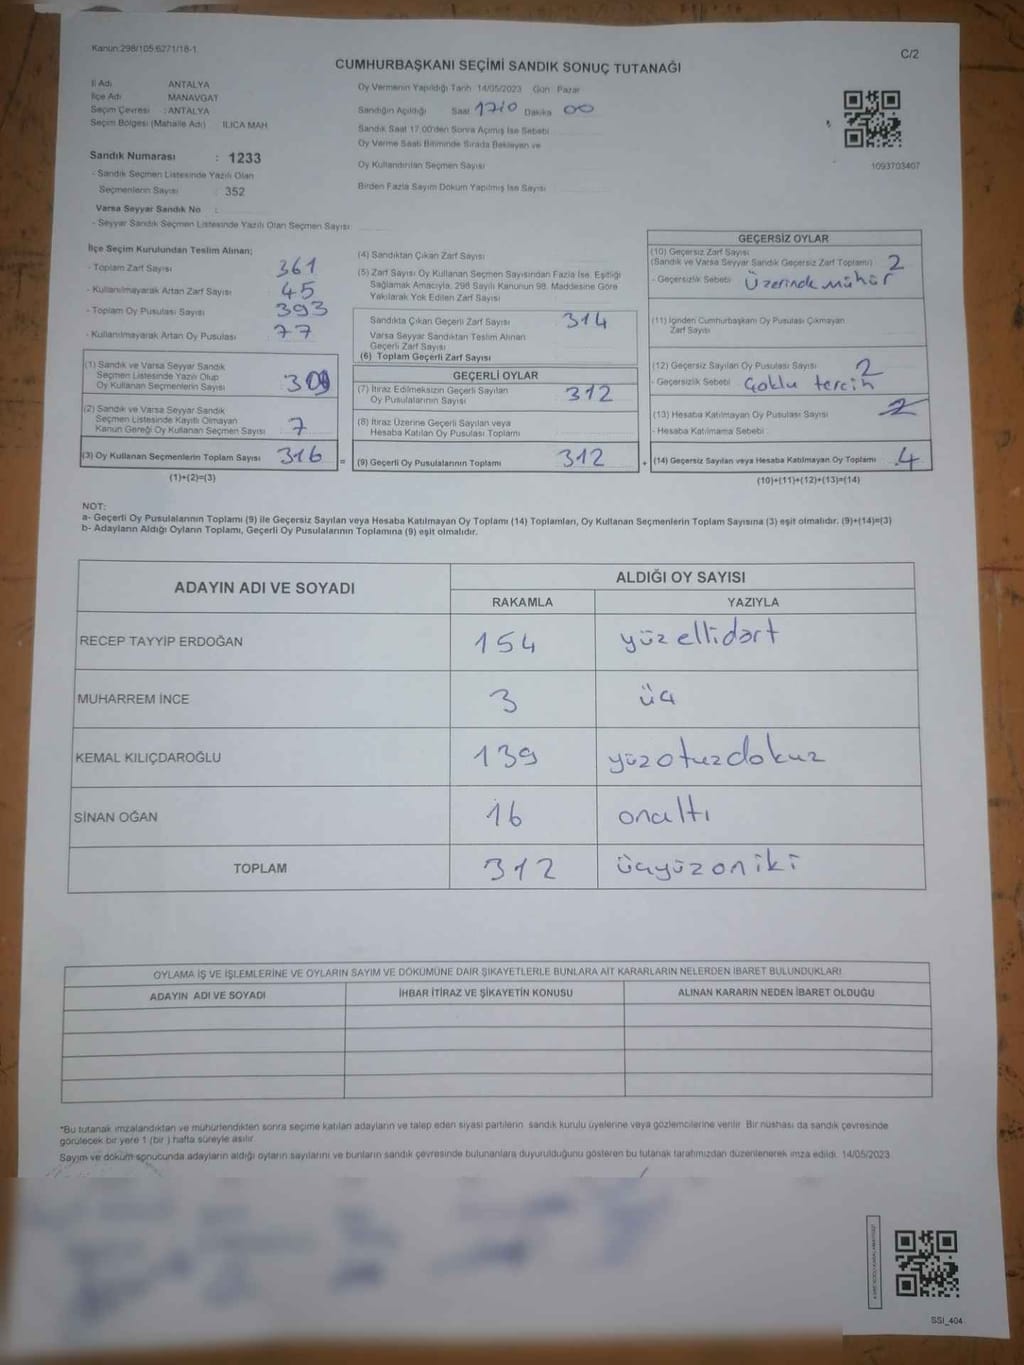 Kanun:298/105:6271/18-1
C/2
CUMHURBAŞKANI SEÇİMİ SANDIK SONUÇ TUTANAĞI
İl Adı ANTALYA
İlçe Adı MANAVGAT
Seçim Çevresi : ANTALYA
Seçim Bölgesi (Mahalle Adı) ILICA MAH
Sandık Numarası : 1233
- Sandık Seçmen Listesinde Yazılı Olan
Seçmenlerin Sayısı : 352
Varsa Seyyar Sandık No :
- Seyyar Sandık Seçmen Listesinde Yazılı Olan Seçmen Sayısı
Oy Vermenin Yapıldığı Tarih 14/05/2023 Gün Pazar
Sandığın Açıldığı Saat 17:0 Dakika 00
Sandık Saat 17.00'den Sonra Açımış İse Sebebi
Oy Verme Saati Bitiminde Sırada Bekleyen ve
Oy Kullandırılan Seçmen Sayısı
Birden Fazla Sayım Döküm Yapılmış İse Sayısı
1093703407
İlçe Seçim Kurulundan Teslim Alınan;
- Toplam Zarf Sayısı 361
- Kullanılmayarak Artan Zarf Sayısı 45
- Toplam Oy Pusulası Sayısı 393
- Kullanılmayarak Artan Oy Pusulası 77
(1) Sandık ve Varsa Seyyar Sandık
Seçmen Listesinde Yazılı Olup
Oy Kullanan Seçmenlerin Sayısı 309
(2) Sandık ve Varsa Seyyar Sandık
Seçmen Listesinde Kayıtlı Olmayan
Kanun Gereği Oy Kullanan Seçmen Sayısı 7
(3) Oy Kullanan Seçmenlerin Toplam Sayısı 316 =
(1)+(2)=(3)
(4) Sandıktan Çıkan Zarf Sayısı
(5) Zarf Sayısı Oy Kullanan Seçmen Sayısından Fazla İse, Eşitliği
Sağlamak Amacıyla, 298 Sayılı Kanunun 98. Maddesine Göre
Yakılarak Yok Edilen Zarf Sayısı
Sandıkta Çıkan Geçerli Zarf Sayısı 314
Varsa Seyyar Sandıktan Teslim Alınan
Geçerli Zarf Sayısı
(6) Toplam Geçerli Zarf Sayısı
GEÇERLİ OYLAR
(7) İtiraz Edilmeksizin Geçerli Sayılan
Oy Pusulalarının Sayısı 312
(8) İtiraz Üzerine Geçerli Sayılan veya
Hesaba Katılan Oy Pusulası Toplamı
(9) Geçerli Oy Pusulalarının Toplamı 312 +
GEÇERSİZ OYLAR
(10) Geçersiz Zarf Sayısı
(Sandık ve Varsa Seyyar Sandık Geçersiz Zarf Toplamı) 2
- Geçersizlik Sebebi Üzerinde mühür
(11) İçinden Cumhurbaşkanı Oy Pusulası Çıkmayan
Zarf Sayısı
(12) Geçersiz Sayılan Oy Pusulası Sayısı 2
- Geçersizlik Sebebi Çoklu tercih
(13) Hesaba Katılmayan Oy Pusulası Sayısı 2
- Hesaba Katılmama Sebebi
(14) Geçersiz Sayılan veya Hesaba Katılmayan Oy Toplamı 4
(10)+(11)+(12)+(13)=(14)
NOT:
a- Geçerli Oy Pusulalarının Toplamı (9) ile Geçersiz Sayılan veya Hesaba Katılmayan Oy Toplamı (14) Toplamları, Oy Kullanan Seçmenlerin Toplam Sayısına (3) eşit olmalıdır. (9)+(14)=(3)
b- Adayların Aldığı Oyların Toplamı, Geçerli Oy Pusulalarının Toplamına (9) eşit olmalıdır.
ADAYIN ADI VE SOYADI ALDIĞI OY SAYISI
RAKAMLA YAZIYLA
RECEP TAYYİP ERDOĞAN 154 yüzellidört
MUHARREM İNCE 3 üç
KEMAL KILIÇDAROĞLU 139 yüzotuzdokuz
SİNAN OĞAN 16 onaltı
TOPLAM 312 üçyüzoniki
OYLAMA İŞ VE İŞLEMLERİNE VE OYLARIN SAYIM VE DÖKÜMÜNE DAİR ŞİKAYETLERLE BUNLARA AİT KARARLARIN NELERDEN İBARET BULUNDUKLARI
ADAYIN ADI VE SOYADI İHBAR İTİRAZ VE ŞİKAYETİN KONUSU ALINAN KARARIN NEDEN İBARET OLDUĞU
*Bu tutanak imzalandıktan ve mühürlendikten sonra seçime katılan adayların ve talep eden siyasi partilerin sandık kurulu üyelerine veya gözlemcilerine verilir. Bir nüshası da sandık çevresinde
görülecek bir yere 1 (bir ) hafta süreyle asılır
Sayım ve döküm sonucunda adayların aldığı oyların sayılarını ve bunların sandık çevresinde bulunanlara duyurulduğunu gösteren bu tutanak tarafımızdan düzenlenerek imza edildi. 14/05/2023
SSI_404